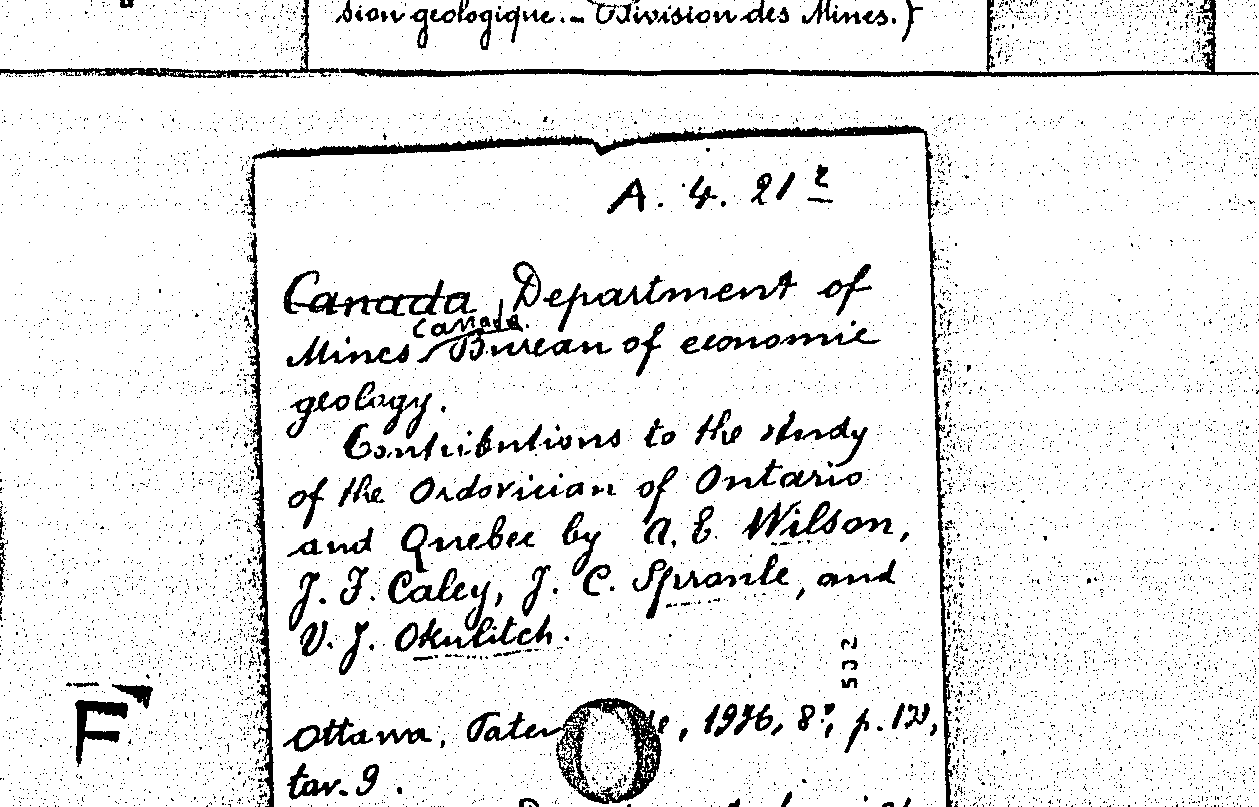 sion geologique. - Division des Mines.)
A. 4. 21
Canada, Department of
Canada.
Mines Bureau of economic
geology.
Contributions to the study
of the Ordovician of Ontario
and Quebec by A. E. Wilson,
J. F. Caley, J. C. Sproule, and
V. J. Okulitch.
532
F
Ottawa, 8°, p.
tav. 9.